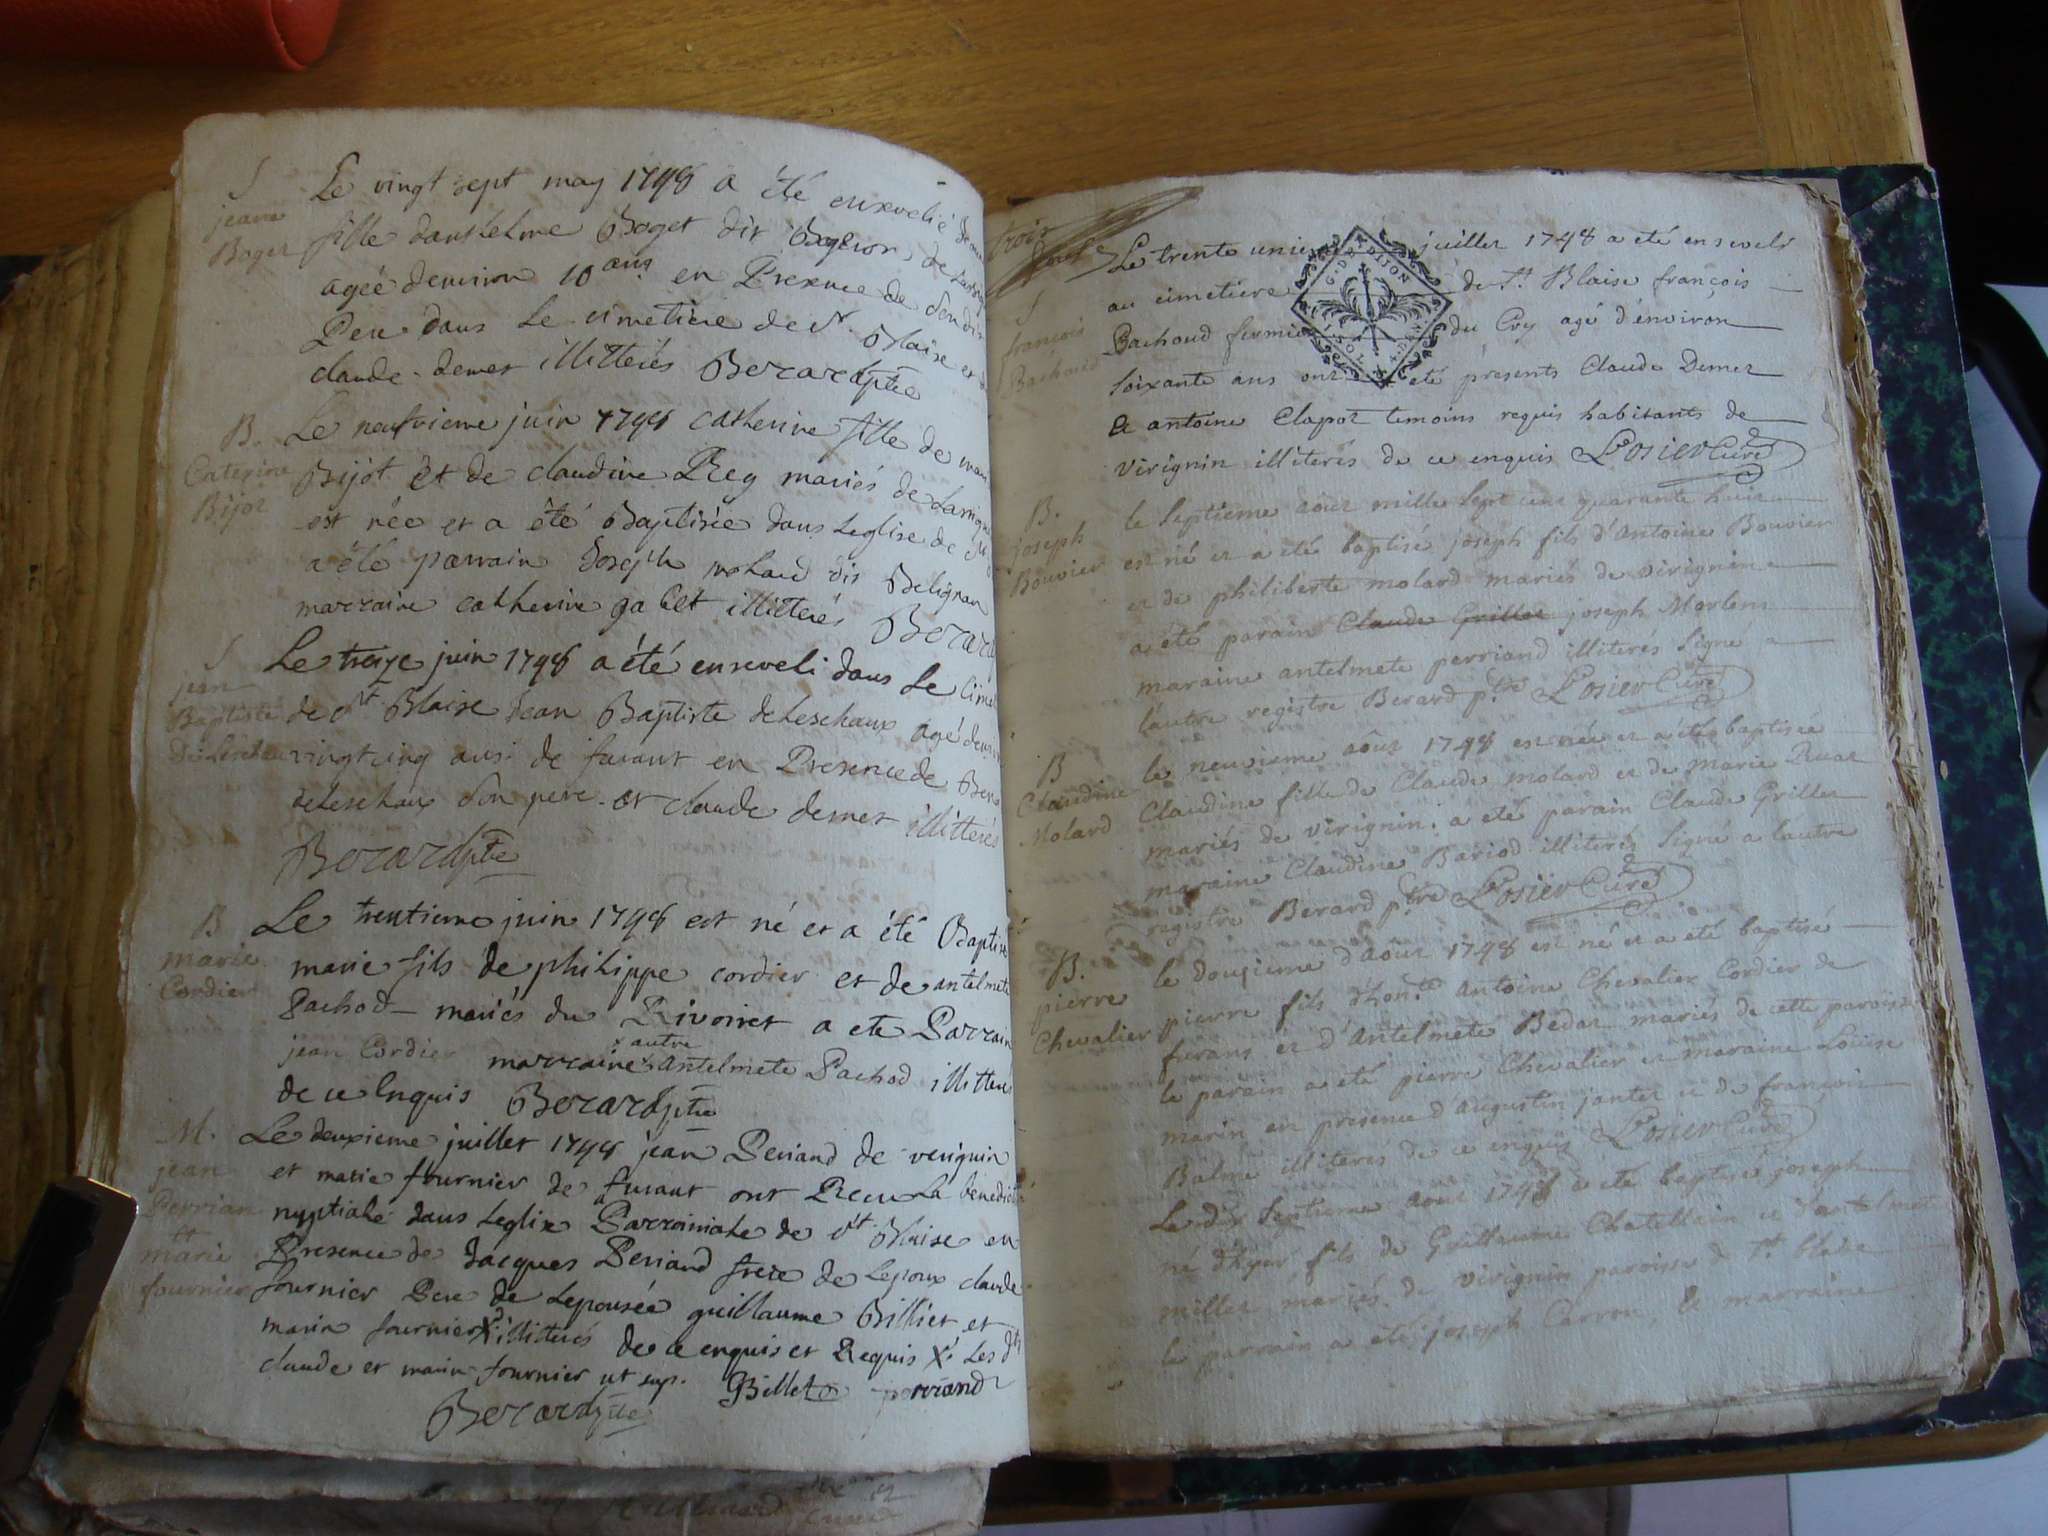 S
jeanne
Boget
Le vingt sept may 1748 a été ensevelie
fille danthelme Boget dit
agée denviron 10 ans en Presence de son dit
Pere dans Le cimetiere de St Blaise et de
claude demet illitterés Berard ptre
B.
Caterine
Bijot
Le neufvieme juin 1748 catherine fille de
Bijot et de claudine Rey mariés de
est née et a été Baptisée dans Leglise de
a été parrain Joseph molard dit Belignan
marraine catherine gallet illitterés Berard
S
jean
Baptiste
Le treize juin 1748 a été enseveli dans Le
de St Blaise Jean Baptiste deLeschaux agé
vingt cinq ans de furant en Presence de
deLeschaux son pere et claude demet illitterés
Berard ptre
B
marie
Cordier
Le trentieme juin 1748 est né et a été Baptisé
marie fils de philippe cordier et de antelmete
Pachod mariés du Rivoiret a eté Parrain
jean Cordier marraine autre antelmete Pachod
de ce Enquis Berard ptre
M.
jean
Perrian
et
marie
fournier
Le deuxieme juillet 1748 jean Periand de verignin
et marie fournier de furant ont Recu La
nuptiale dans Leglise Parroissiale de St Blaise en
Presence de Jacques Periand frere de Lepoux claude
fournier Pere de Lepousée guillaume Billiet et
marin fournier X illitterés de ce enquis et Requis X Les dts
claude et marin fournier ut sup. Billet perriand
Berard ptre
trois
S
françois
Bachoud
Le trente unieme juillet 1748 a eté enseveli
au cimetiere de St Blaise françois
Bachoud fermier du Cry agé d'environ
soixante ans ont été présents Claude Demet
et antoine Clapot temoins requis habitants de
virignin illiterés de ce enquis Losier Curé
G. DE DIJON
B.
joseph
Bouvier
le septieme août mille sept cent quarante huit
est né et a eté baptisé joseph fils d'Antoine Bouvier
et de philiberte molard mariés de virignin
a été parain Claude Grillet joseph Martens
maraine antelmete perriand illiteres Signé
lautre registre Berard ptre Losier Curé
B
Claudine
Molard
le neuvieme août 1748 est née et a été baptisée
Claudine fille de Claude molard et de Marie
mariés de virignin. a eté parain Claude Grillet
maraine Claudine Bariod illiterés Signé a lautre
registre Berard ptre Losier Curé
B.
pierre
Chevalier
le douzieme d'août 1748 est né et a eté baptisé
pierre fils d'hon.te Antoine Chevalier Cordier de
furans et d'Antelmete Bedat mariés de cette paroisse
le parain a eté pierre Chevalier et maraine Louise
marin en presence d'augustin jantet et de françois
Balme illiteres de ce enquis Losier Curé
Le dix septieme août 1748 a eté baptisé joseph
né d'hyer fils de Guillaume Chatellain et d'antelmete
millet mariés de virignin paroisse de St blaise
le parrain a eté joseph Carron la marraine